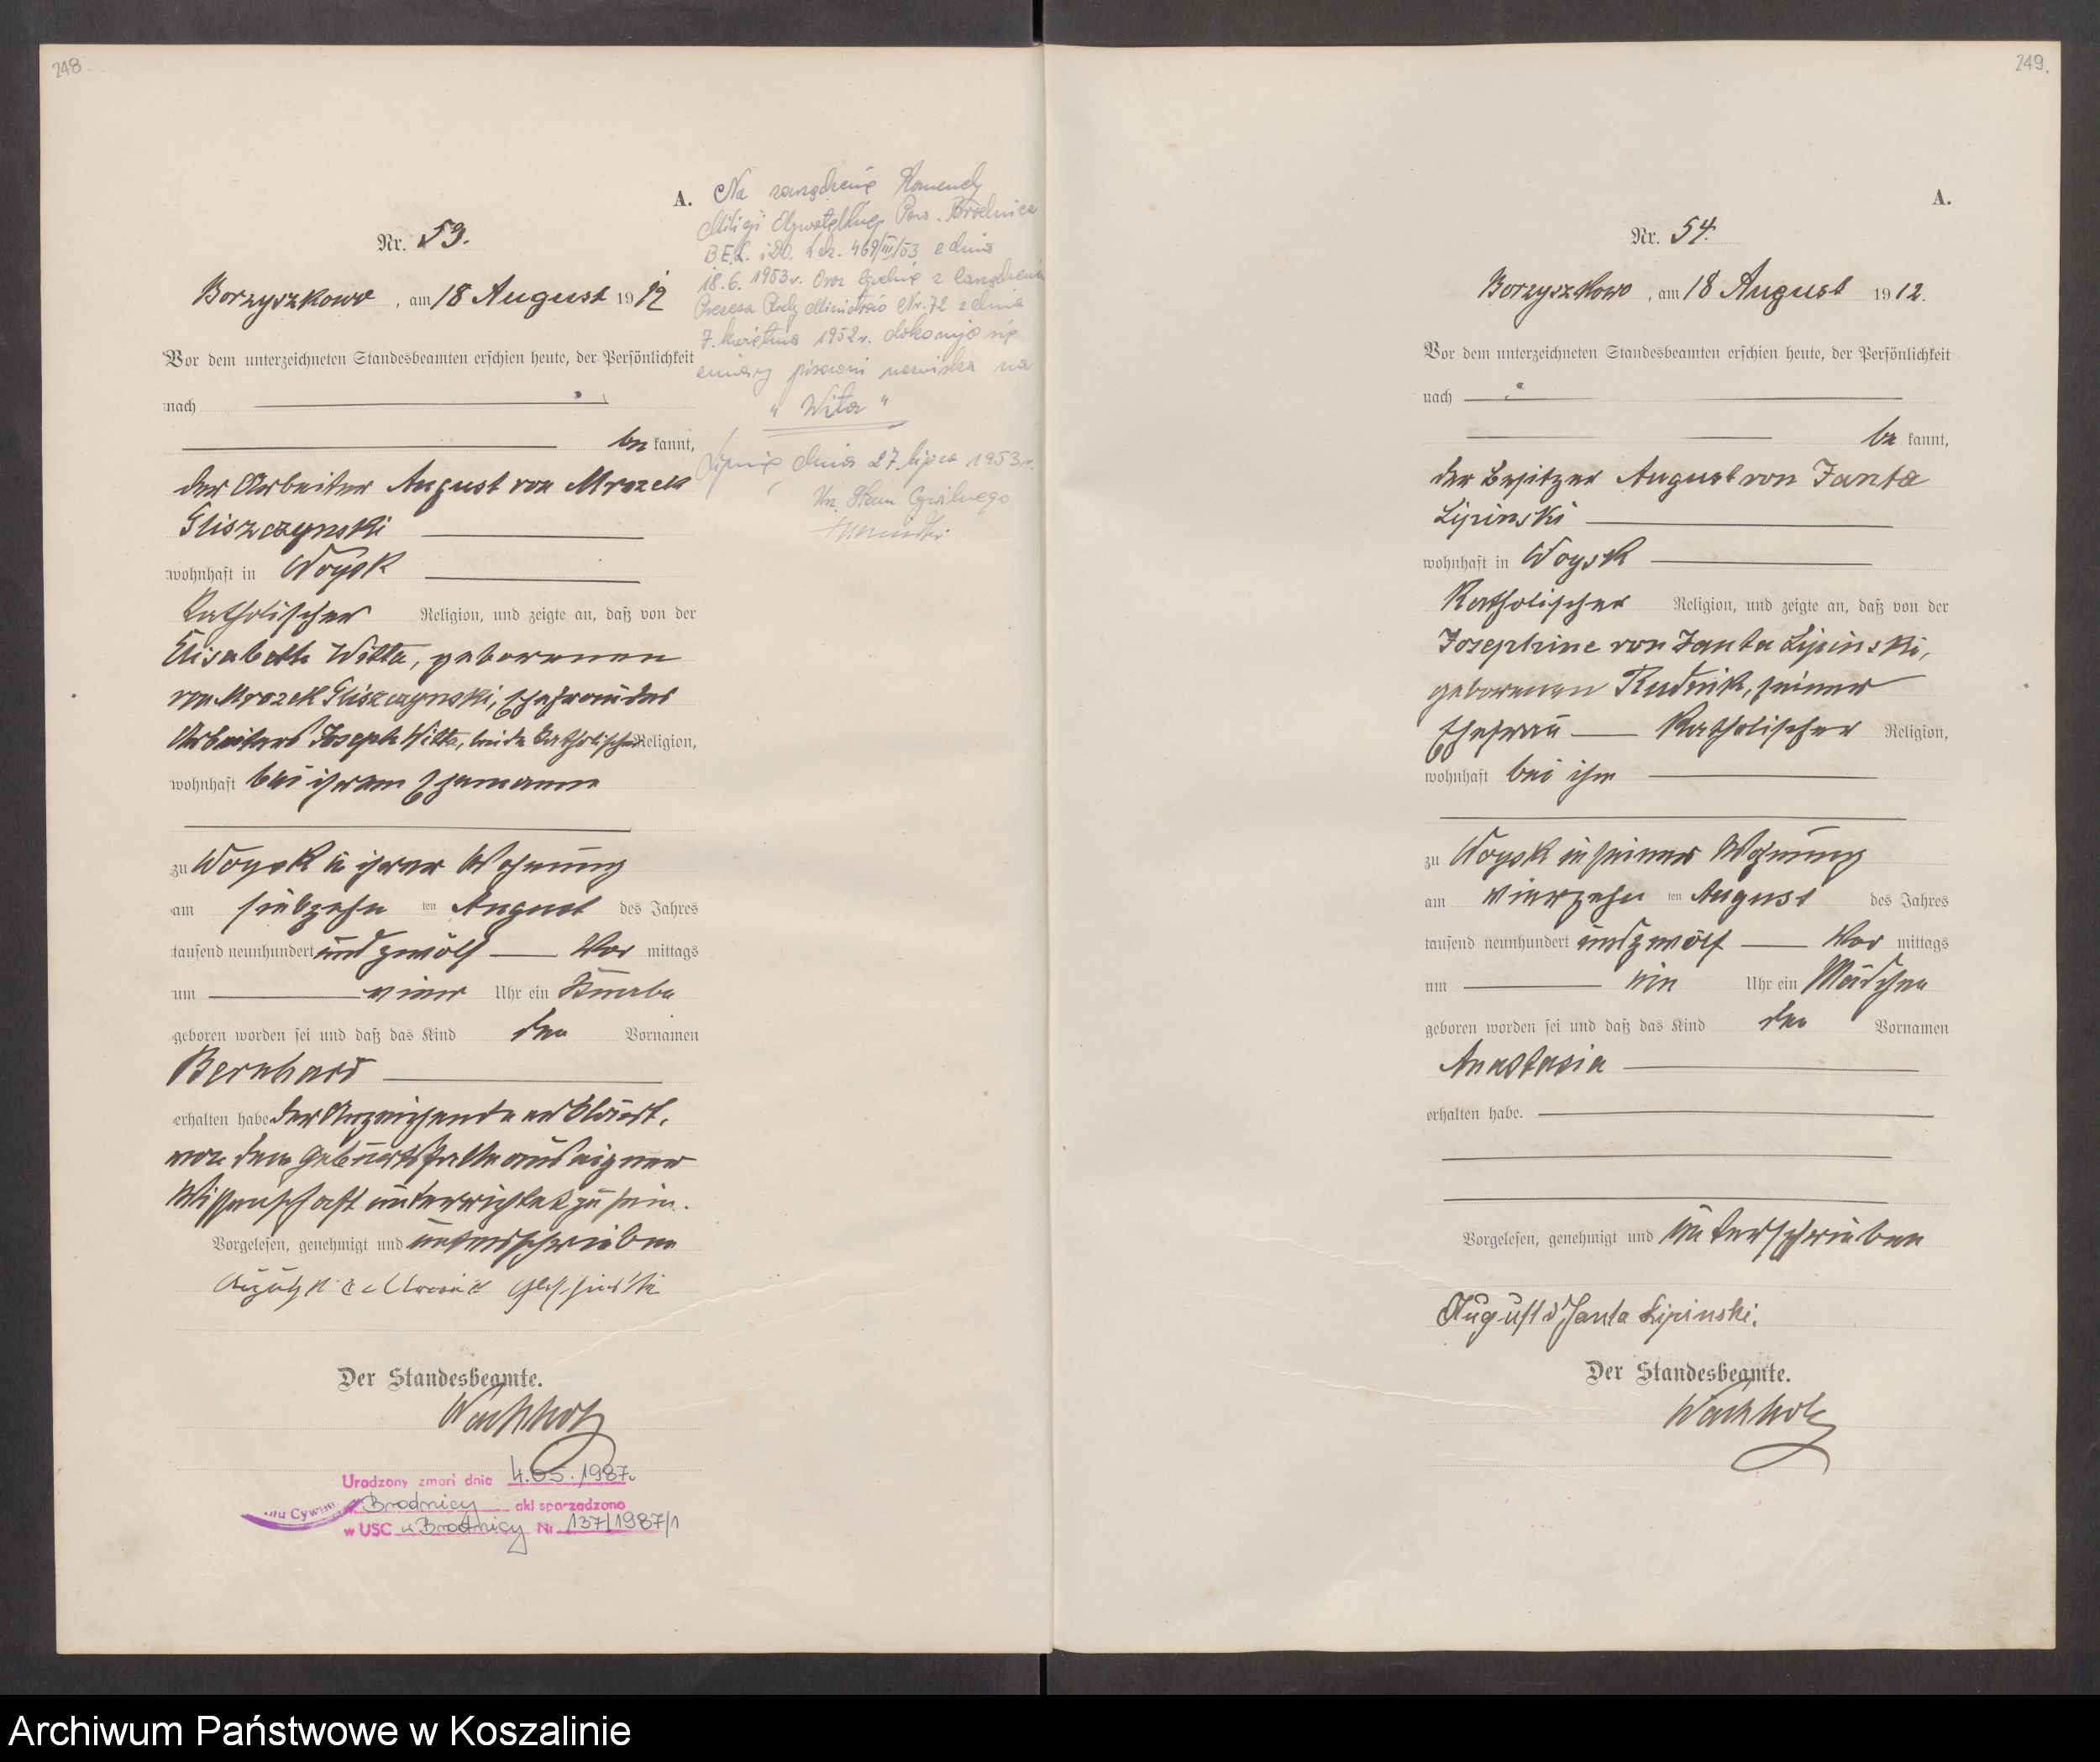 248.
A.
Nr. 53.
Borzyszkowo, am 18 August 1912
Vor dem unterzeichneten Standesbeamten erschien heute, der Persönlichkeit
nach
be kannt,
der Arbeiter August von Mrozek
Gliszczynski
wohnhaft in Woysk
Katholischer Religion, und zeigte an, daß von der
Elisabeth Witta, geborenen
von Mrozek Gliszczynski, Ehefrau des
Arbeiters Joseph Witta, beide Katholischer Religion,
wohnhaft bei ihrem Ehemanne
zu Woysk in ihrer Wohnung
am siebzehn ten August des Jahres
tausend neunhundert und zwölf Vor mittags
um vier Uhr ein Knabe
geboren worden sei und daß das Kind den Vornamen
Bernhard
erhalten habe der Anzeigende erklärt,
von dem Geburtsfalle aus eigener
Wissenschaft unterrichtet zu sein.
Vorgelesen, genehmigt und unterschrieben
August
Der Standesbeamte.
Wachholz
Urodzony zmarł dnia 4.05.1987r.
w Brodnicy akt sporządzono
w USC w Brodnicy Nr 137/1987/1
Na zarządzenie Komendy
Milicji Obywatelskiej Pow. Brodnica
B.E.L. i D.O. L.dz. 469/III/53 z dnia
18.6.1953r. oraz zgodnie z zarządzeniem
Prezesa Rady Ministrów Nr. 72 z dnia
7. kwietnia 1952r. dokonuje się
zmiany pisowni nazwiska na
"Wita"
Lipnica dnia 27. lipca 1953r.
Urz. Stanu Cywilnego
249.
A.
Nr. 54.
Borzyszkowo, am 18 August 1912.
Vor dem unterzeichneten Standesbeamten erschien heute, der Persönlichkeit
nach
be kannt,
der Besitzer August von Janta
Lipinski
wohnhaft in Woysk
Katholischer Religion, und zeigte an, daß von der
Josephine von Janta Lipinski,
geborenen Rudnik, seiner
Ehefrau Katholischer Religion,
wohnhaft bei ihm
zu Woysk in seiner Wohnung
am vierzehn ten August des Jahres
tausend neunhundert und zwölf Vor mittags
um ein Uhr ein Mädchen
geboren worden sei und daß das Kind den Vornamen
Anastasia
erhalten habe.
Vorgelesen, genehmigt und unterschrieben
August v Janta Lipinski.
Der Standesbeamte.
Wachholz
Archiwum Państwowe w Koszalinie